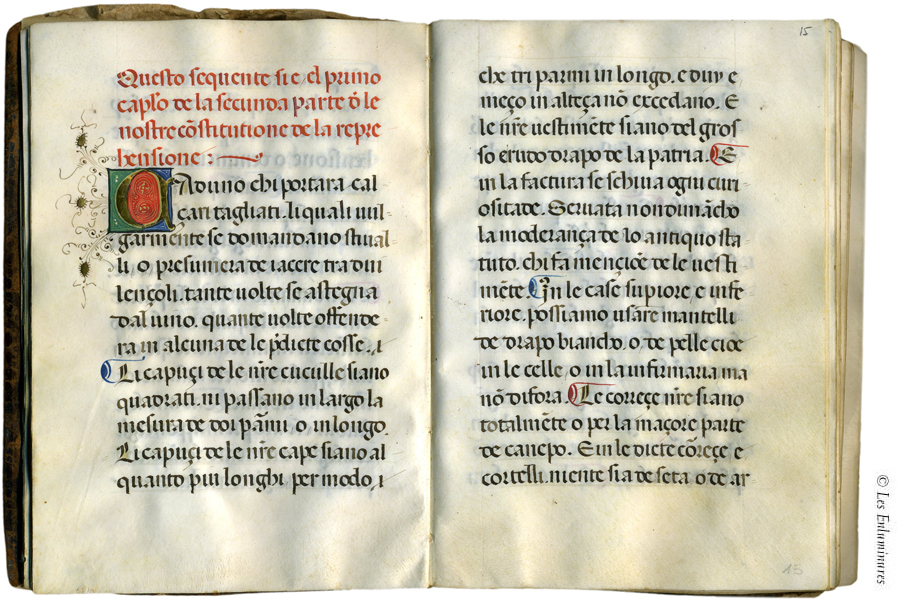 Questo sequente sie el primo
capłо de la secunda parte ð le
nostre cōstitutione de la repre
hensione :
Caduno chi portara cal
çari tagliati. li quali vul
garmente se domandano stival
li. o presumera de iacere tra dui
lençoli. tante volte se astegna
dal vino. quante volte offende
ra in alcuna de le p̄dicte cosse. i
Li capuçi de le nr̄e cuculle siano
quadrati. ni passano in largo la
mesura de doi pāmi. o in longo.
Li capuçi de le nr̄e cape siano al
quanto piu longhi. per modo. i
15
che tri parmi in longo. e duy e
meço in alteça nō excedano. E
le nr̄e vestimēte siano del gros
so crudo drapo de la patria. E
in la factura se schiva ogni curi
ositade. Servata non
la moderança de lo antiquo sta
tuto. chi fa mencióe de le vesti
mēte. In le case supiore. e infe
riore. possiamo usare mantelli
de drapo biancho. o de pelle cioe
in le celle. o in la infirmaria ma
nō difora. Le coreçe nr̄e siano
totalmēte o per la maçore parte
de canepo. E in le dicte cōreçe. e
cortelli. niente sia de seta o de ar
15
© Les Enluminures